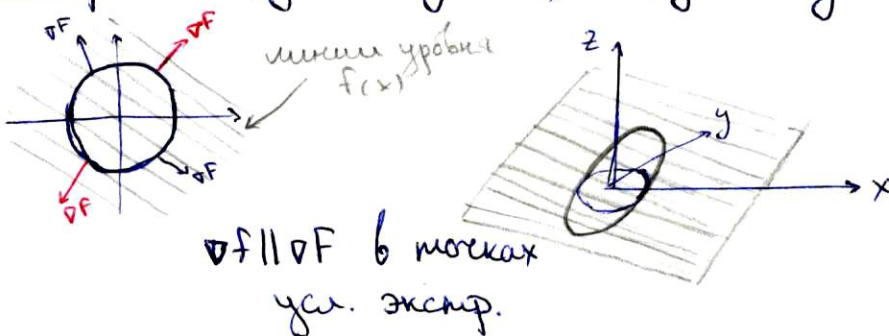 ∇F
∇F
линии уровня
f(x)
∇F
∇F
z
y
x
∇f || ∇F в точках
усл. экстр.